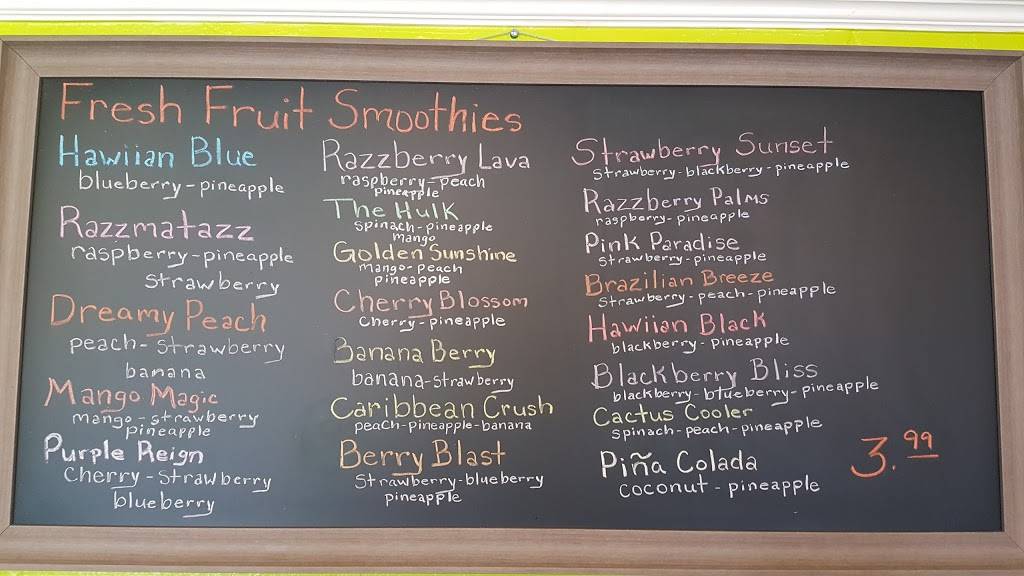 Fresh Fruit Smoothies
Hawiian Blue
blueberry-pineapple
Razzmatazz
raspberry-pineapple
strawberry
Dreamy Peach
peach-strawberry
banana
Mango Magic
mango-strawberry
pineapple
Purple Reign
Cherry-strawberry
blueberry
Razzberry Lava
raspberry-peach
pineapple
The Hulk
spinach-pineapple
mango
Golden Sunshine
mango-peach
pineapple
Cherry Blossom
Cherry-pineapple
Banana Berry
banana-strawberry
Caribbean Crush
peach-pineapple-banana
Berry Blast
Strawberry-blueberry
pineapple
Strawberry Sunset
Strawberry-blackberry-pineapple
Razzberry Palms
raspberry-pineapple
Pink Paradise
strawberry-pineapple
Brazilian Breeze
Strawberry-peach-pineapple
Hawiian Black
blackberry-pineapple
Blackberry Bliss
blackberry-blueberry-pineapple
Cactus Cooler
spinach-peach-pineapple
Piña Colada
coconut-pineapple
3.99